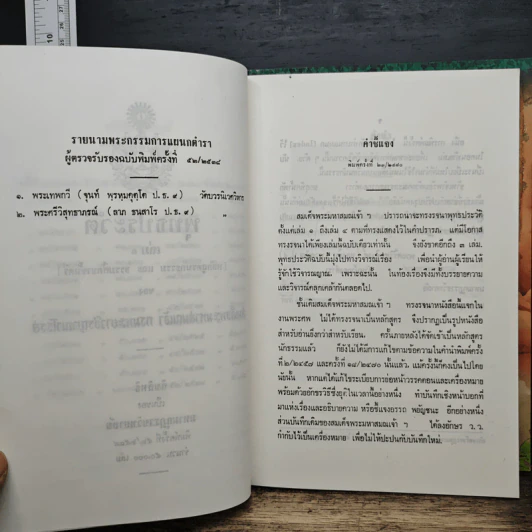 รายนามพระกรรมการแผนกตำรา
ผู้ตรวจรับรองฉบับพิมพ์ครั้งที่ ๕๒/๒๕๑๘
๑. พระเทพกวี (จุนท์ พฺรหฺมคุตฺโต ป.ธ. ๙) วัดบวรนิเวศวิหาร
๒. พระศรีวิสุทธาภรณ์ (ลาภ ธนสาโร ป.ธ. ๙) ,,
คำชี้แจง
สมเด็จพระมหาสมณเจ้า ฯ ปรารถนาจะทรงรจนาพุทธประวัติ
ตั้งแต่เล่ม ๑ ถึงเล่ม ๔ ตามที่ทรงแสดงไว้ในคำปรารภ แต่มีโอกาส
ทรงรจนาได้เพียงเล่มนี้ฉบับเดียวเท่านั้น จึงยังขาดอีกถึง ๓ เล่ม.
พุทธประวัติฉบับนี้มุ่งไปทางวิจารณ์เรื่อง เพื่อนำผู้อ่านผู้เรียนให้
รู้จักใช้วิจารณญาณ. เพราะฉะนั้น ในท้องเรื่องจึงมีทั้งบรรยายความ
และวิจารณ์คลุกเคล้ากันตลอดไป.
ชั้นเดิมสมเด็จพระมหาสมณเจ้า ฯ ทรงรจนาหนังสือนี้แจกใน
งานพระศพ ไม่ได้ทรงรจนาเป็นหลักสูตร จึงปรากฏเป็นรูปหนังสือ
สำหรับอ่านยิ่งกว่าสำหรับเรียน. ครั้นภายหลังได้จัดเข้าเป็นหลักสูตร
นักธรรมแล้ว ก็ยังไม่ได้มีการแก้ไขตามข้อความในคำนำพิมพ์ครั้ง
ที่ ๒/๒๔๕๗ และครั้งที่ ๑๔/๒๔๗๐ นั้นแล้ว. แม้ครั้งนี้ก็คงเป็นไปโดย
นัยนั้น หากแต่ได้แก้ไขระเบียบการย่อหน้าวรรคตอนและเครื่องหมาย
พร้อมด้วยอักขรวิธีซึ่งยุติในเวลานี้อย่างหนึ่ง ทำบันทึกเชิงหลักบอกที่
มาแห่งเรื่องและอธิบายความ หรือชี้แจงอรรถ พยัญชนะ อีกอย่างหนึ่ง
ส่วนบันทึกเดิมของสมเด็จพระมหาสมณเจ้า ฯ ได้ลงอักษร ว. ว.
กำกับไว้เป็นเครื่องหมาย เพื่อไม่ให้ปะปนกับบันทึกใหม่.